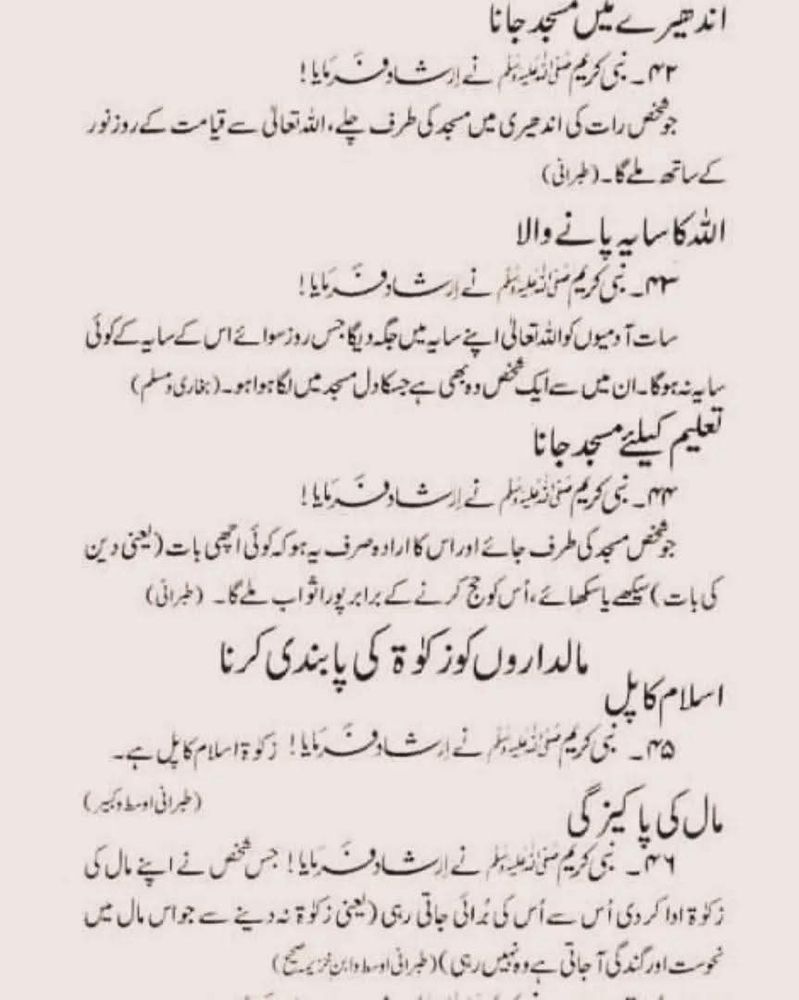 اندھیرے میں مسجد جانا
۴۲۔ نبی کریم ﷺ نے اِرشاد فَرمَایا!
جو شخص رات کی اندھیری میں مسجد کی طرف چلے، اللہ تعالٰی سے قیامت کے روز نور
کے ساتھ ملے گا۔ (طبرانی)
اللہ کا سایہ پانے والا
۴۳۔ نبی کریم ﷺ نے اِرشاد فَرمَایا!
سات آدمیوں کو اللہ تعالٰی اپنے سایہ میں جگہ دیگا جس روز سوائے اس کے سایہ کے کوئی
سایہ نہ ہوگا۔ ان میں سے ایک شخص وہ بھی ہے جسکا دل مسجد میں لگا ہوا ہو۔ (بخاری و مسلم)
تعلیم کیلئے مسجد جانا
۴۴۔ نبی کریم ﷺ نے اِرشاد فَرمَایا!
جو شخص مسجد کی طرف جائے اور اس کا ارادہ صرف یہ ہو کہ کوئی اچھی بات (یعنی دین
کی بات) سیکھے یا سکھائے، اُس کو حج کرنے کے برابر پورا ثواب ملے گا۔ (طبرانی)
مالداروں کو زکوٰۃ کی پابندی کرنا
اسلام کا پل
۴۵۔ نبی کریم ﷺ نے اِرشاد فَرمَایا! زکوۃ اسلام کا پل ہے۔
(طبرانی اوسط و کبیر)
مال کی پاکیزگی
۴۶۔ نبی کریم ﷺ نے اِرشاد فَرمَایا! جس شخص نے اپنے مال کی
زکوٰۃ ادا کر دی اُس سے اُس کی بُرائی جاتی رہی (یعنی زکوٰۃ نہ دینے سے جو اس مال میں
نحوست اور گندگی آ جاتی ہے وہ نہیں رہی) (طبرانی اوسط و ابن خزیمہ صحیح)